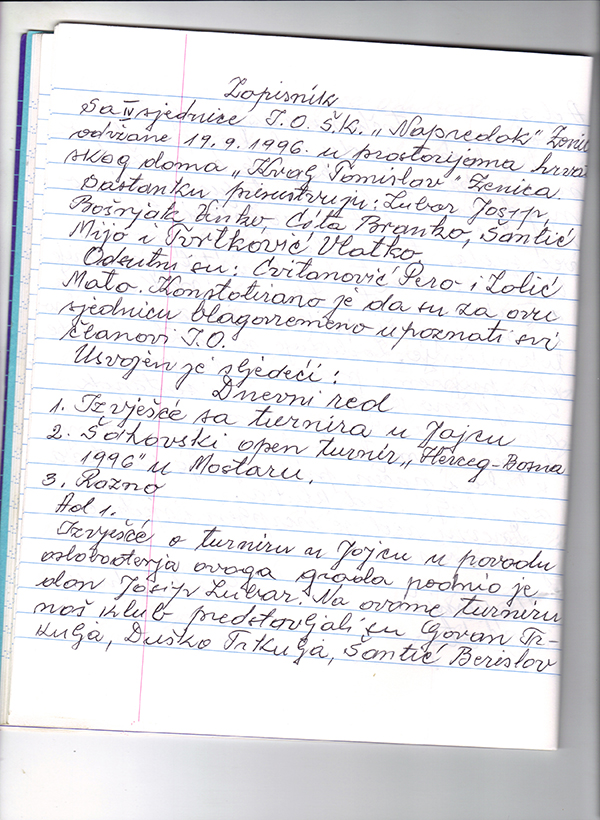 Zapisnik
Sa IV sjednice I.O. Š.K. „Napredak" Zenic
održane 19.9.1996. u prostorijama hrva
skog doma „Kralj Tomislav" Zenica
Sastanku prisustvuju: Lubar Josip,
Bošnjak Vinko, Ćota Branko, Šantić
Mijo i Tvrtković Vlatko
Odsutni su: Cvitanović Pero i Lolić
Mato. Konstatirano je da su za ovu
sjednicu blagovremeno upoznati svi
članovi I.O.
Usvojen je sljedeći:
Dnevni red
1. Izvješće sa turnira u Jajcu
2. Šahovski open turnir „Herceg-Bosna
1996" u Mostaru.
3. Razno
Ad 1.
Izvješće o turniru u Jajcu u povodu
oslobođenja ovoga grada podnio je
dan Josip Lubar. Na ovome turniru
naš klub predstavljali su Goran Tr-
kulja, Duško Trkulja, Šantić Berislav